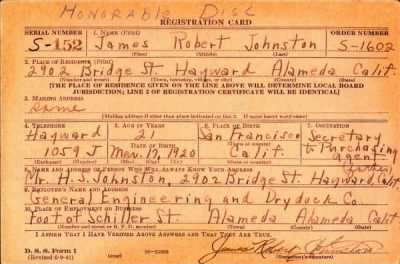 Honorable Disc
REGISTRATION CARD
SERIAL NUMBER 1. NAME (Print) ORDER NUMBER
S-152 James Robert Johnston S-1602
(First) (Middle) (Last)
2. PLACE OF RESIDENCE (Print)
2902 Bridge St. Hayward Alameda Calif.
(Number and street) (Town, township, village, or city) (County) (State)
[THE PLACE OF RESIDENCE GIVEN ON THE LINE ABOVE WILL DETERMINE LOCAL BOARD
JURISDICTION; LINE 2 OF REGISTRATION CERTIFICATE WILL BE IDENTICAL]
3. MAILING ADDRESS
Same
[Mailing address if other than place indicated on line 2. If same, insert word same]
4. TELEPHONE 5. AGE IN YEARS 6. PLACE OF BIRTH 7. OCCUPATION
Hayward 21 San Francisco Secretary
DATE OF BIRTH to Purchasing
1059J Mar. 19, 1920 Calif. Agent
(Mo.) (Day) (Yr.)
8. NAME AND ADDRESS OF PERSON WHO WILL ALWAYS KNOW YOUR ADDRESS
Mr. H. S. Johnston, 2902 Bridge St. Hayward, Calif.
9. EMPLOYER'S NAME AND ADDRESS
General Engineering and Drydock Co.
10. PLACE OF EMPLOYMENT OR BUSINESS
Foot of Schiller St. Alameda Alameda Calif
(Number and street or R. F. D. number) (Town) (County) (State)
I AFFIRM THAT I HAVE VERIFIED ABOVE ANSWERS AND THAT THEY ARE TRUE.
D. S. S. Form 1
(Revised 6-9-41) (over) James Robert Johnston